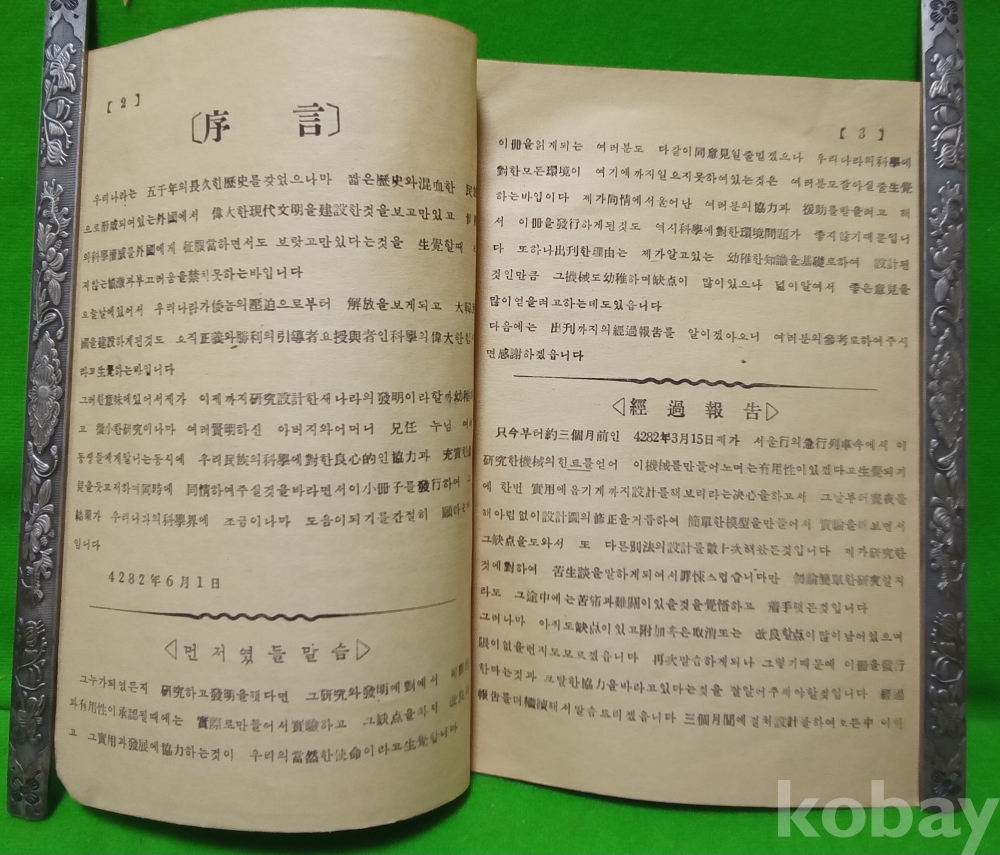 【2】
〔序 言〕
우리나라는 五千年의長久한歷史를갖었으나마 짧은歷史와混血한
으로形成되여있는外國에서 偉大한現代文明을建設한것을보고만있고
의科學權威를外國에게 당하면서도 보랏고만있다는것을 生覺할때
지않는 부끄러움을禁치못하는바입니다
오늘날에있어서 우리나라가倭놈의壓迫으로부터 解放을보게되고 大韓
國을建設하게된것도 오직正義와勝利의引導者요授與者인科學의偉大한
라고生覺하는바입니다
그러한意味에있어서제가 이제까지硏究設計한새나라의發明이라할까幼稚
고 微小한硏究이나마 여러賢明하신 아버지와어머니 兄任 누님
동생들에게알니는동시에 우리民族의科學에對한良心的인協力과 充實한
見을듯고저하며同時에 同情하여주실것을바라면서이小冊子를發行하여
結果가 우리나라의科學界에 조금이나마 도음이되기를간절히 願하는
입니다
4282年6月1日
◁먼저였들말슴▷
그누가되였든지 硏究하고發明을햇다면 그硏究와發明에對에서
과有用性이承認될때에는 實際로만들어서實驗하고 그缺点을
고 그實用과發展에協力하는것이 우리의當然한使命이라고生覺됩니다
【3】
이冊을읽게되는 여러분도 다같이同意見일줄밉겠으나 우리나라의科學에
對한모든環境이 여기에까지일으지못하여있는것은 여러분도잘아실줄生覺
하는바입이다 제가同情에서울어난 여러분의協力과 援助를받을려고 해
서 이冊을發行하게된것도 역시科學에對한環境問題가 좋지않기때문입니
다 또하나出刊한理由는 제가알고있는 幼稚한知識을基礎로하여 設計된
것인만큼 그機械도幼稚하며缺点이 많이있으나 넓이알여서 좋은意見을
많이얻을려고하는데도있읍니다
다음에는 出刊까지의經過報告를 알이겠아오니 여러분의參考로하여주시
면感謝하겠읍니다
◁經過報告▷
只今부터約三個月前인 4282年3月15日제가 서울行의急行列車속에서이
硏究한機械의힌트를얻어 이機械를만들어노며는有用性이있겠다고生覺되기
에한번 實用에옴기게까지設計를해보리라는決心을하고서 그날부터晝夜를
해아림없이設計圖의修正을거듭하여 簡單한模型을만들어서 實驗을해보면서
그缺点을도와서 또 다른別法의設計를數十次해왔든것입니다 제가硏究한
것에對하여 苦生談을말하게되어서罪悚스럽습니다만 勿論簡單한硏究일지
라도 그途中에는苦痛과難關이있을것을覺悟하고 着手햇든것입니다
그러나마 아직도缺点이있고附加혹은取消또는 改良할点이많이남어있으며
限이없을런지도모르겠읍니다 再次말슴하게되나 그렇기때문에 이冊을發行
한다는것과 協力을바라고있다는것을 잘알어주셔야할것입니다 經過
報告를더繼續해서말슴드리겠읍니다 三個月間에걸처設計를하여오든中
kobay